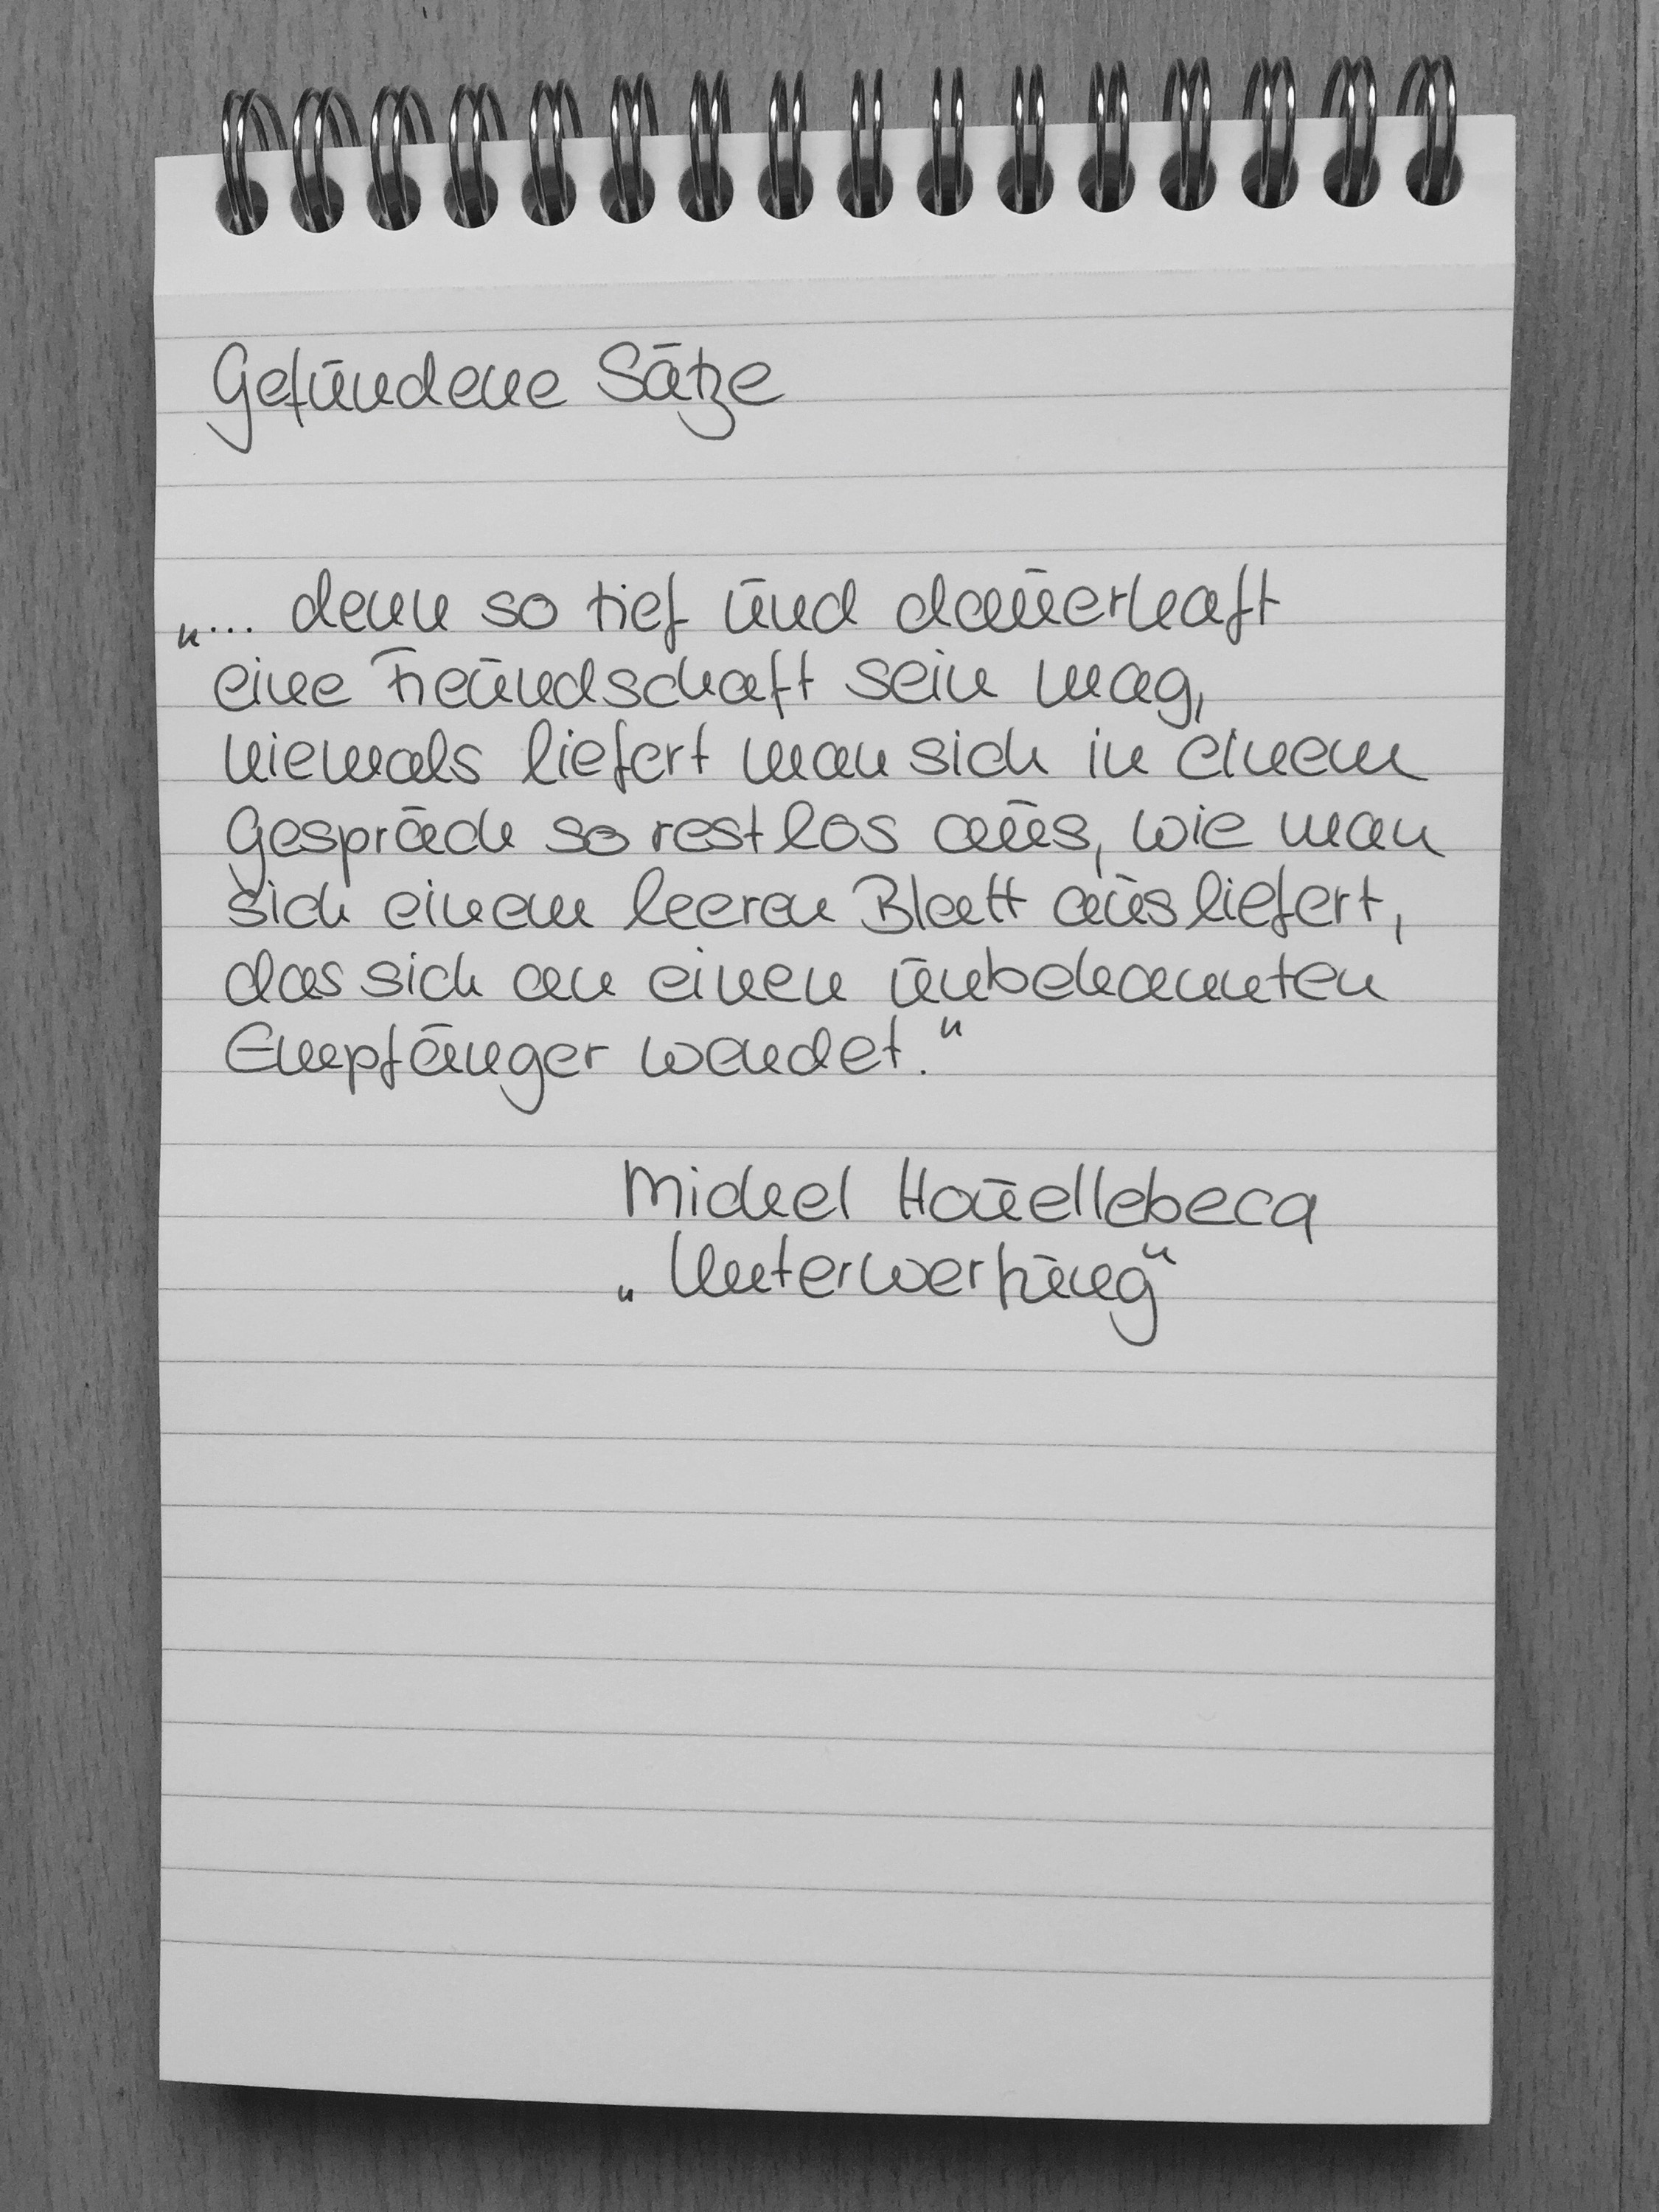 Gefundene Sätze
„... denn so tief und dauerhaft
eine Freundschaft sein mag,
niemals liefert man sich in einem
Gespräch so restlos aus, wie man
sich einem leeren Blatt ausliefert,
das sich an einen unbekannten
Empfänger wendet."
Michel Houellebecq
„Unterwerfung"